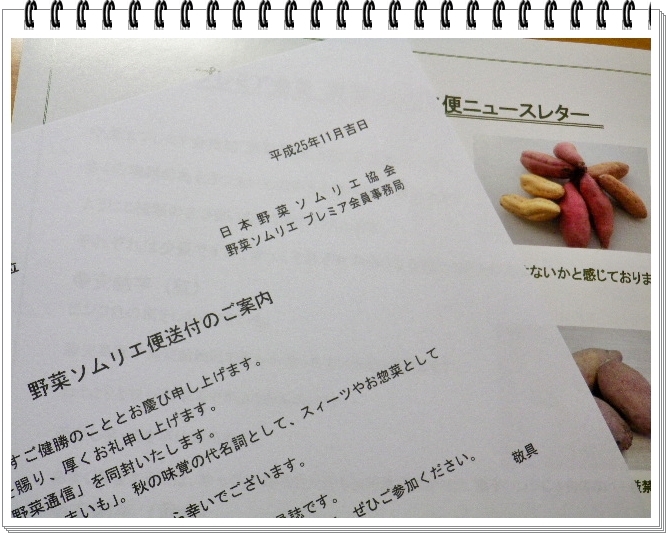 便ニュースレター
平成25年11月吉日
日本野菜ソムリエ協会
野菜ソムリエ プレミア会員事務局
位
ないかと感じておりま
野菜ソムリエ便送付のご案内
すご健勝のこととお慶び申し上げます。
賜り、厚くお礼申し上げます。
野菜通信」を同封いたします。
まいも」。秋の味覚の代名詞として、スィーツやお惣菜として
ら幸いでございます。
員誌です。
ぜひご参加ください。
敬具